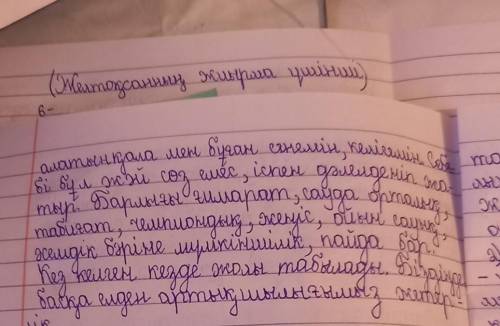 (Желтоқсанның жиырма үшінші)
6-
алатын қала мен бұған сенемін, келісемін. Себе
бі бұл жәй сөз емес, іспен дәлелденіп жа-
тыр. Барлығы ғимарат, сауда орталық,
табиғат, чемпиондық, жеңіс, ойын сауық,
жемдік бәріне мүмкіншілік, пайда бар.
Кез келген кезде жолы табылады. Біздіңде
басқа елден артықшылығымыз жетер-
лік